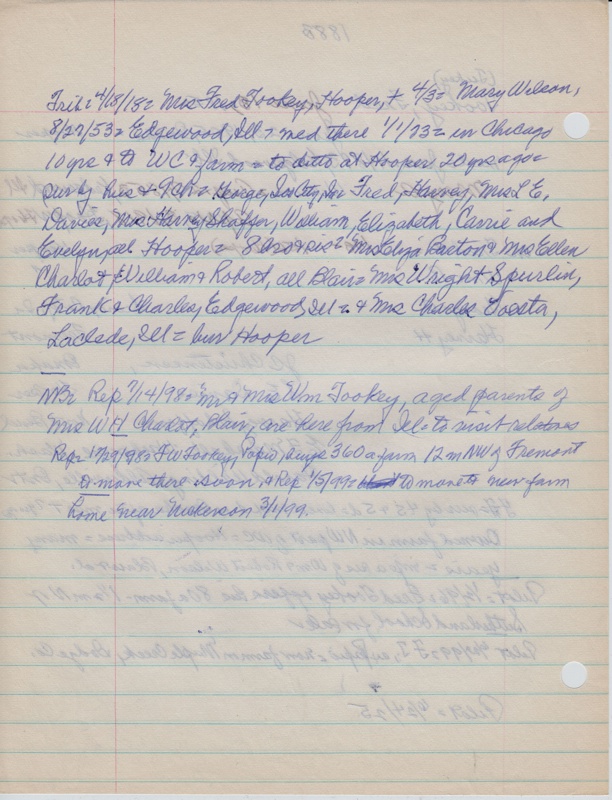 Trib: 4/18/18= Mrs Fred Tookey, Hooper, + 4/3= Mary Wilson,
8/27/53= Edgewood, Ill = med there 1/1/73= in Chicago
10 yrs & to WC & farm = to ditto at Hooper 20 yrs ago=
sur by Hus & 9 ch = George, Fred, Harvey, Mrs L E.
Davis, Mrs Harry Shaffer, William, Elizabeth, Carrie and
Evelyn, all Hooper = 8 bro & sis = Mrs Eliza Paxton & Mrs Ellen
Charlot & William & Robert, all Blair = Mrs Wright Spurlin,
Frank & Charles, Edgewood, Ill = & Mrs Charles
Laclede, Ill = bur Hooper
NB: Rep 7/14/98= Mr & Mrs Wm Tookey, aged parents of
Mrs W H Charlot, Blair, are here from Ill = to visit relatives
Rep= 12/29/98= F W Tookey, Papio, buys 360 a farm 12 m NW of Fremont
to move there soon, & Rep 1/5/99= to move to new farm
home near Nickerson 3/1/99.